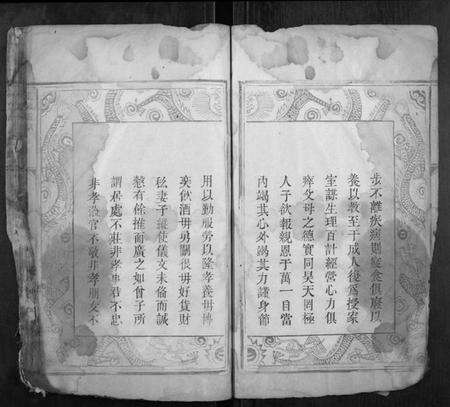 步不離疾痛則寢食俱廢以
養以教至于成人復為授家
室謀生理百計經營心力俱
瘁父母之德實同昊天罔極
人子欲報親恩于萬一自當
內竭其心外竭其力謹身節
用以勤服勞以隆孝養毋博
奕飲酒毋好勇鬬狠毋好貨財
私妻子縱使儀文未備而誠
慤有餘推而廣之如曾子所
謂居處不莊非孝事君不忠
非孝蒞官不敬非孝朋友不